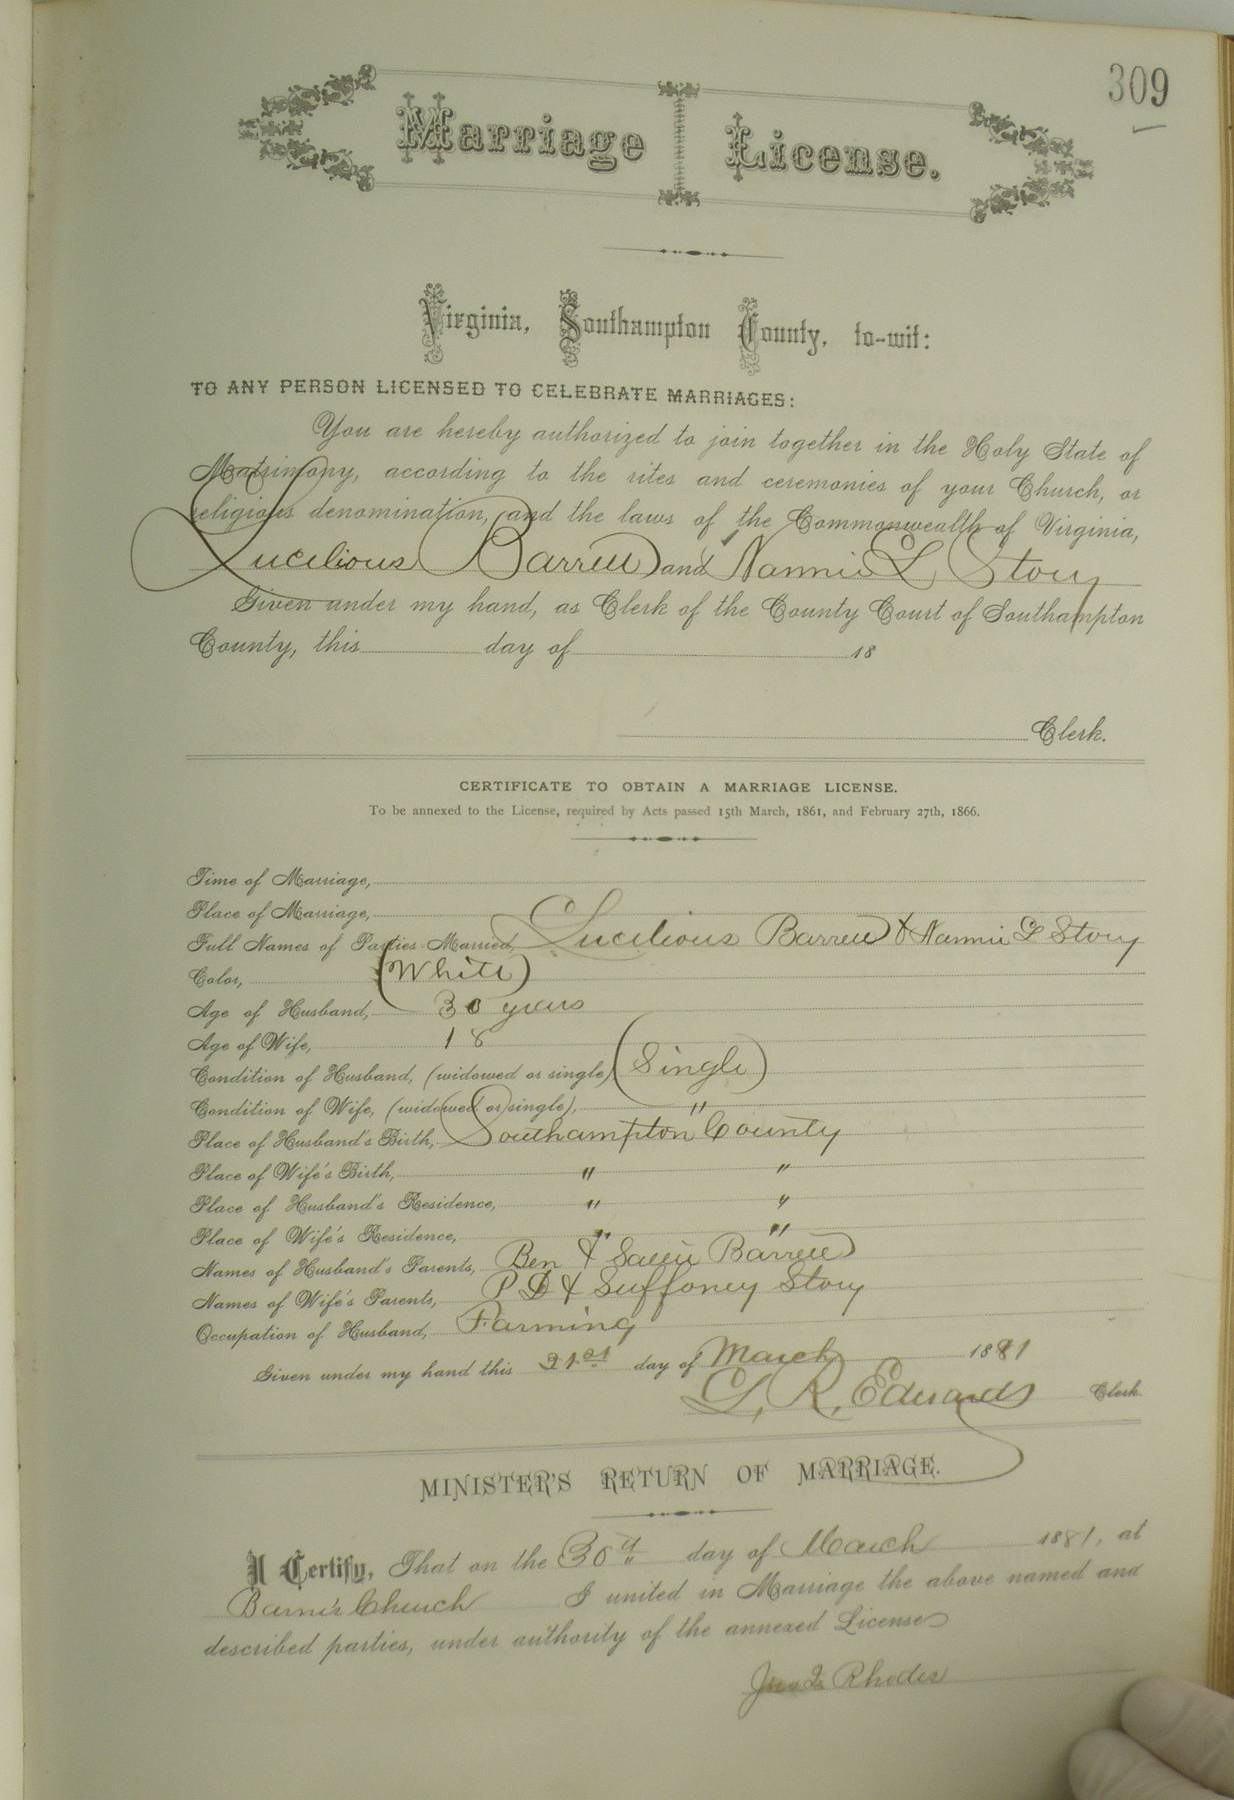 309
Marriage License.
Virginia, Southampton County, to-wit:
TO ANY PERSON LICENSED TO CELEBRATE MARRIAGES:
You are hereby authorized to join together in the Holy State of
Matrimony, according to the rites and ceremonies of your Church, or
religious denomination, and the laws of the Commonwealth of Virginia,
Lucilious Barrett and Nannie L Story
Given under my hand, as Clerk of the County Court of Southampton
County, this day of 18
Clerk.
CERTIFICATE TO OBTAIN A MARRIAGE LICENSE.
To be annexed to the License, required by Acts passed 15th March, 1861, and February 27th, 1866.
Time of Marriage,
Place of Marriage,
Full Names of Parties Married, Lucilious Barrett & Nannie L Story
Color, (White)
Age of Husband, 30 years
Age of Wife, 18
Condition of Husband, (widowed or single) (Single)
Condition of Wife, (widowed or single), "
Place of Husband's Birth, Southampton County
Place of Wife's Birth, " "
Place of Husband's Residence, " "
Place of Wife's Residence, " "
Names of Husband's Parents, Ben & Sallie Barrett
Names of Wife's Parents, P D & Suffoney Story
Occupation of Husband, Farming
Given under my hand this 21st day of March 1881
L. R. Edwards Clerk
MINISTER'S RETURN OF MARRIAGE.
I Certify, That on the 30th day of March 1881, at
Barnes Church I united in Marriage the above named and
described parties, under authority of the annexed License
Rhodes